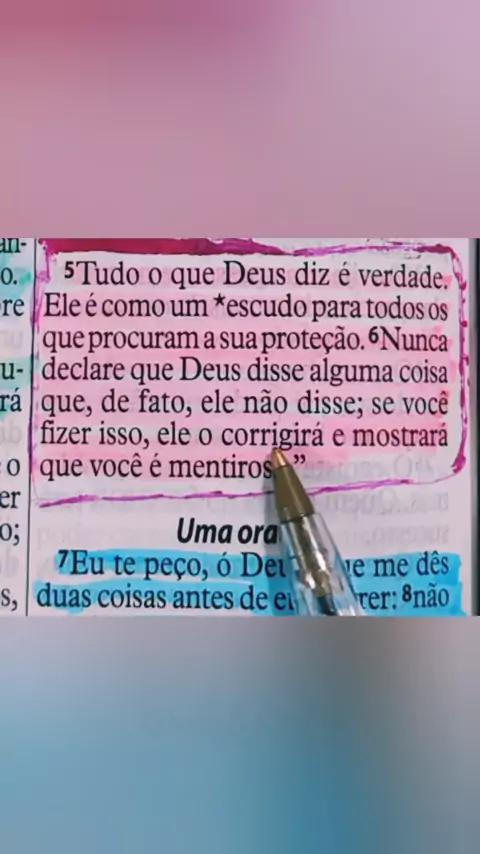 an-
o.
re
u-
rá
o
er
o;
s,
5Tudo o que Deus diz é verdade.
Ele é como um *escudo para todos os
que procuram a sua proteção. 6Nunca
declare que Deus disse alguma coisa
que, de fato, ele não disse; se você
fizer isso, ele o corrigirá e mostrará
que você é mentiros ”
Uma ora
7Eu te peço, ó Deu e me dês
duas coisas antes de eu rer: 8não